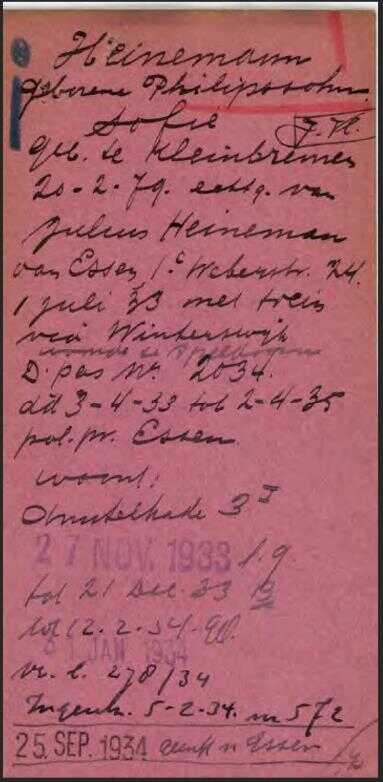 Heinemann
geborene Philipssohn
Sofie J.H.
geb. te Kleinbremen
20-2-79. echtg. van
Julius Heineman
van Essen, 1e Weberstr. 24.
1 juli 33 met trein
via Winterswijk
D. pas Nr. 2034.
dd 3-4-33 tot 2-4-35
pol. pr. Essen.
woont:
Amstelkade 3 I
27 NOV. 1933
tot 21 Dec. 33
tot 2-2-34.
31 JAN 1934
278/34
Ingeschr. 5-2-34. nr 572
25. SEP. 1934 Essen